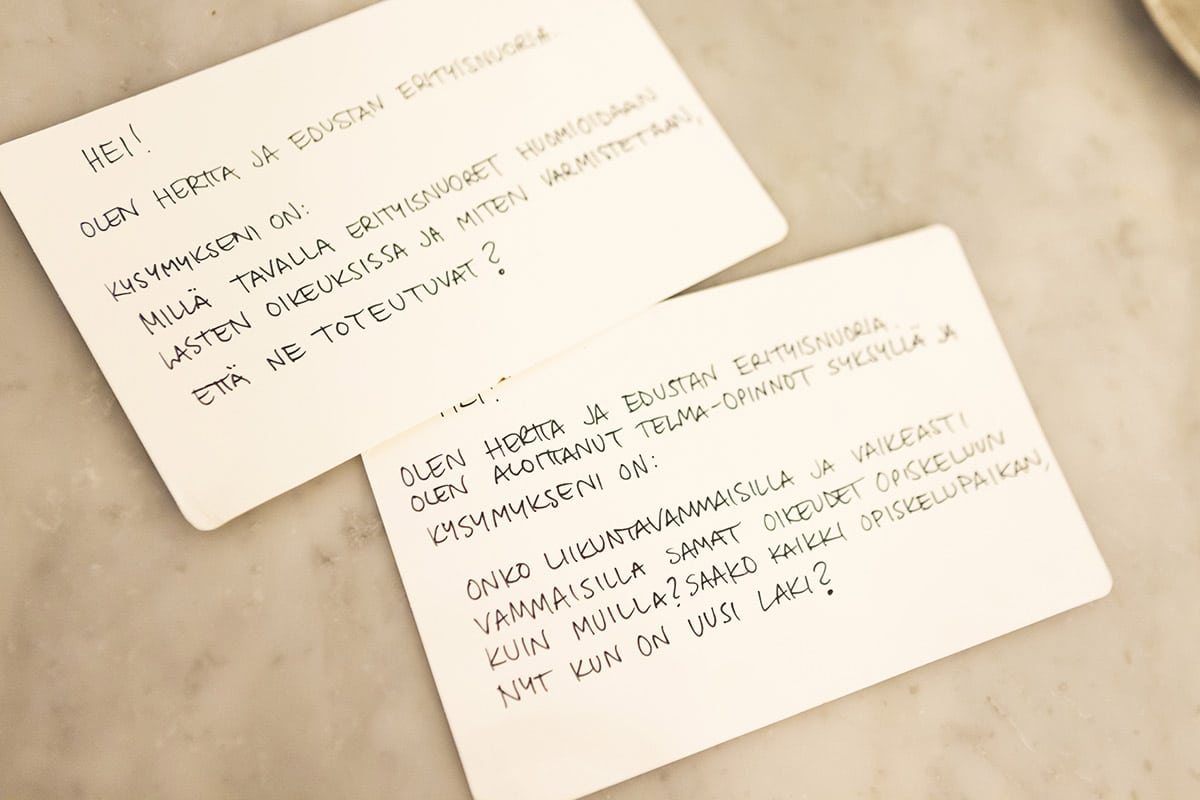 HEI!
OLEN HERTTA JA EDUSTAN ERITYISNUORIA.
KYSYMYKSENI ON:
MILLÄ TAVALLA ERITYISNUORET HUOMIOIDAAN
LASTEN OIKEUKSISSA JA MITEN VARMISTETAAN,
ETTÄ NE TOTEUTUVAT?
HEI!
OLEN HERTTA JA EDUSTAN ERITYISNUORIA.
OLEN ALOITTANUT TELMA-OPINNOT SYKSYLLÄ JA
KYSYMYKSENI ON:
ONKO LIIKUNTAVAMMAISILLA JA VAIKEASTI
VAMMAISILLA SAMAT OIKEUDET OPISKELUUN
KUIN MUILLA? SAAKO KAIKKI OPISKELUPAIKAN,
NYT KUN ON UUSI LAKI?